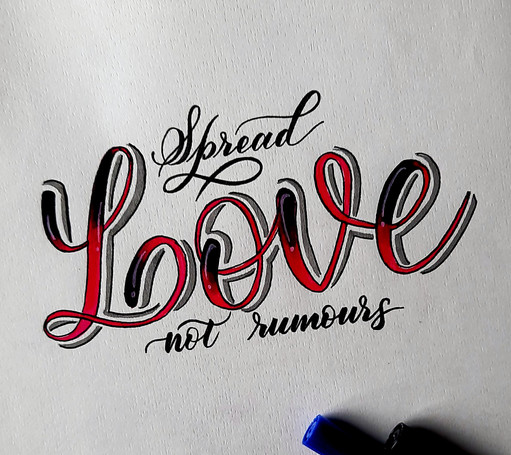 Spread
Love
not rumours